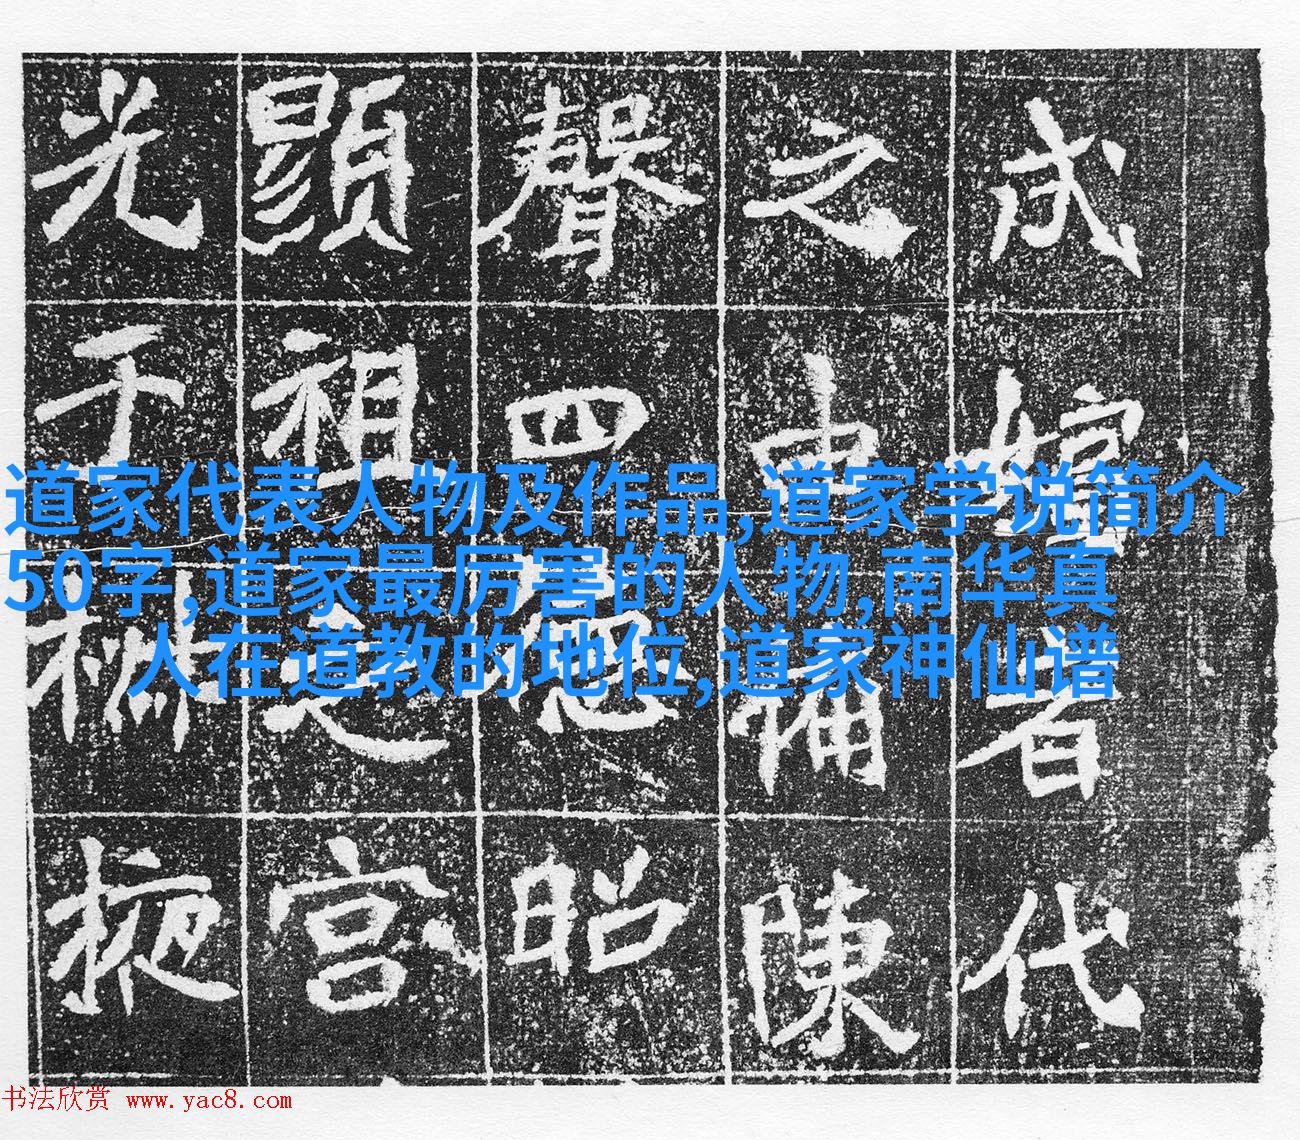 者代
之史備陳
聲四德昭
顯祖之宮
光于椒掖
道家代表人物及作品,道家学说简介
50字,道家最厉害的人物,南华真
人在道教的地位,道家神仙谱
书法欣赏 www.yac8.com